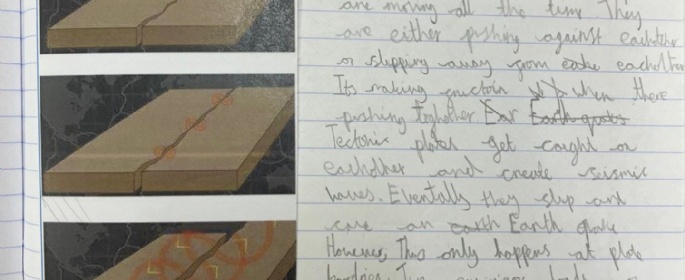 are moving all the time They
are either pushing against eachother
or slipping away from eachother
Its making when there
pushing toghether Ear Earth quakes
Tectonic plates get caught on
eachother and create seismic
waves. Eventally they slip and
an earth Earth quake
However, This only happens at plate